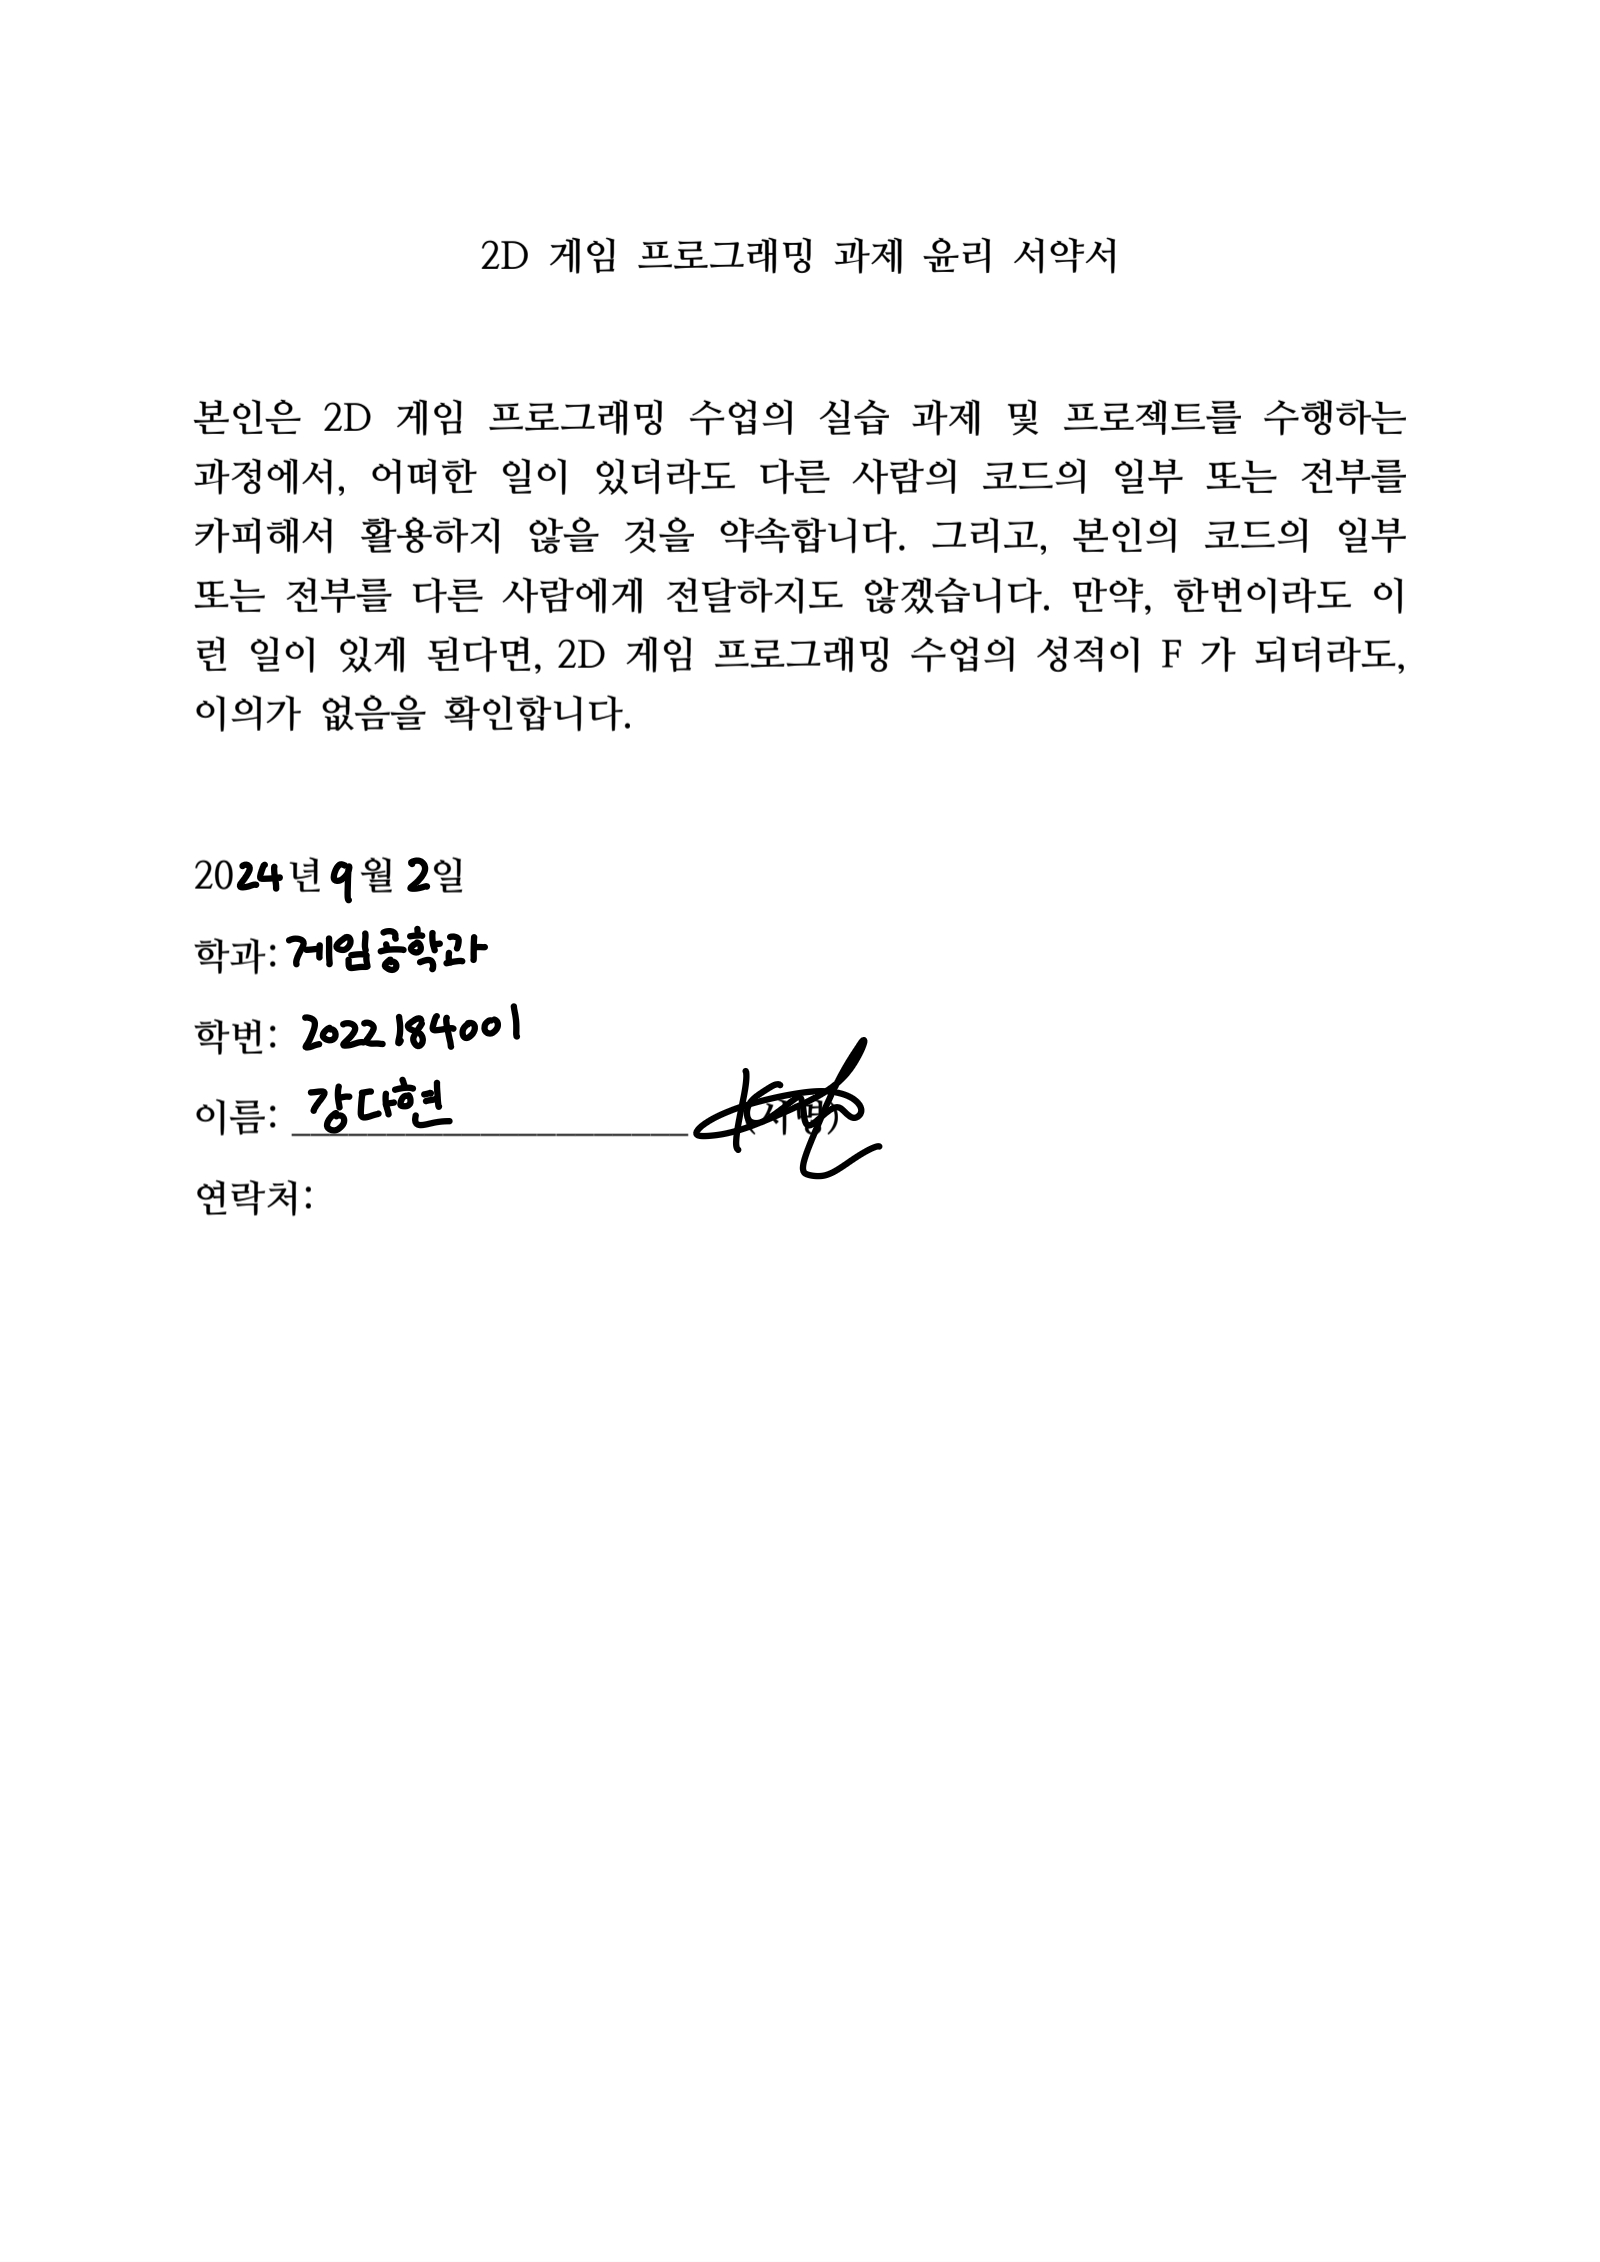 2D 게임 프로그래밍 과제 윤리 서약서
본인은 2D 게임 프로그래밍 수업의 실습 과제 및 프로젝트를 수행하는
과정에서, 어떠한 일이 있더라도 다른 사람의 코드의 일부 또는 전부를
카피해서 활용하지 않을 것을 약속합니다. 그리고, 본인의 코드의 일부
또는 전부를 다른 사람에게 전달하지도 않겠습니다. 만약, 한번이라도 이
런 일이 있게 된다면, 2D 게임 프로그래밍 수업의 성적이 F 가 되더라도,
이의가 없음을 확인합니다.
2024년 9월 2일
학과: 게임공학과
학번: 2022184001
이름: 강다현 (서명)
연락처: